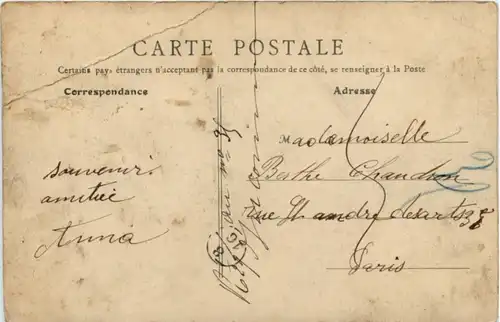 CARTE POSTALE
Certains pays étrangers n'acceptant pas la correspondance de ce côté, se renseigner à la Poste
Correspondance
Adresse
souvenir
amitiée
Anna
au no 35
Mademoiselle
Berthe Chaudron
rue St andré des arts 38
Paris